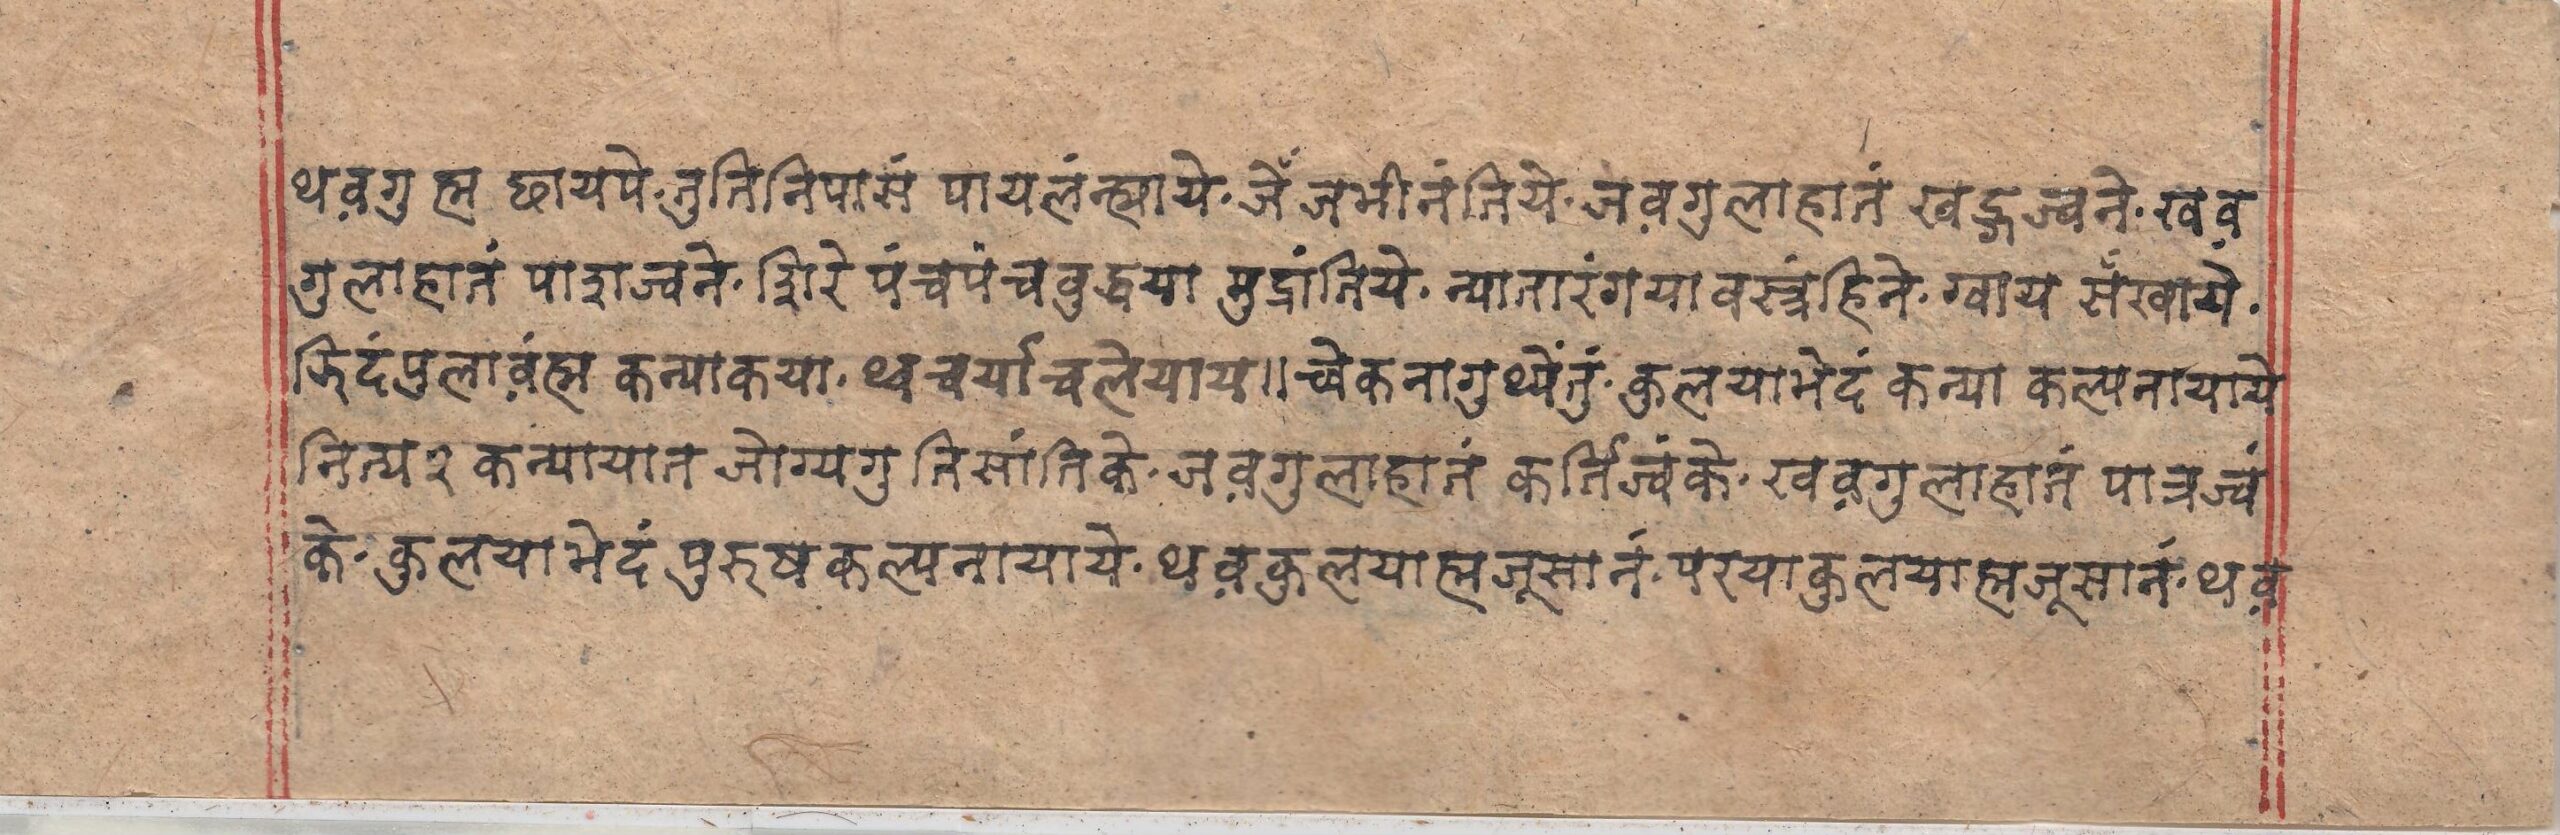 थव़गु ह्म छायपे· तुतिनिपासं पायलंन्ह्याये· जँे जभीनंतिये· जव़गुलाहातं खड्गज्वने· खव़
गुलाहातं पाशज्वने· शिरे पंचपंचवुद्धया मुद्रांतिये· न्यातारंगयावस्त्रंहिने· ग्वाय सँेखाये·
झिदंपुलाव़ंह्म कन्याकया· थ्वचर्याचलेयाय॥ च्वेकनागुथ्येंतुं· कुलयाभेदं कन्या कल्पनायाये
नित्य२ कन्यायात जोग्यगु तिसांतिके· जव़गुलाहातं कर्तिज्वंके· खव़गुलाहातं पात्रज्वं
के· कुलयाभेदं पुरुषकल्पनायाये· थव़कुलयाह्मजूसानं· परयाकुलयाह्मजूसानं· थव़